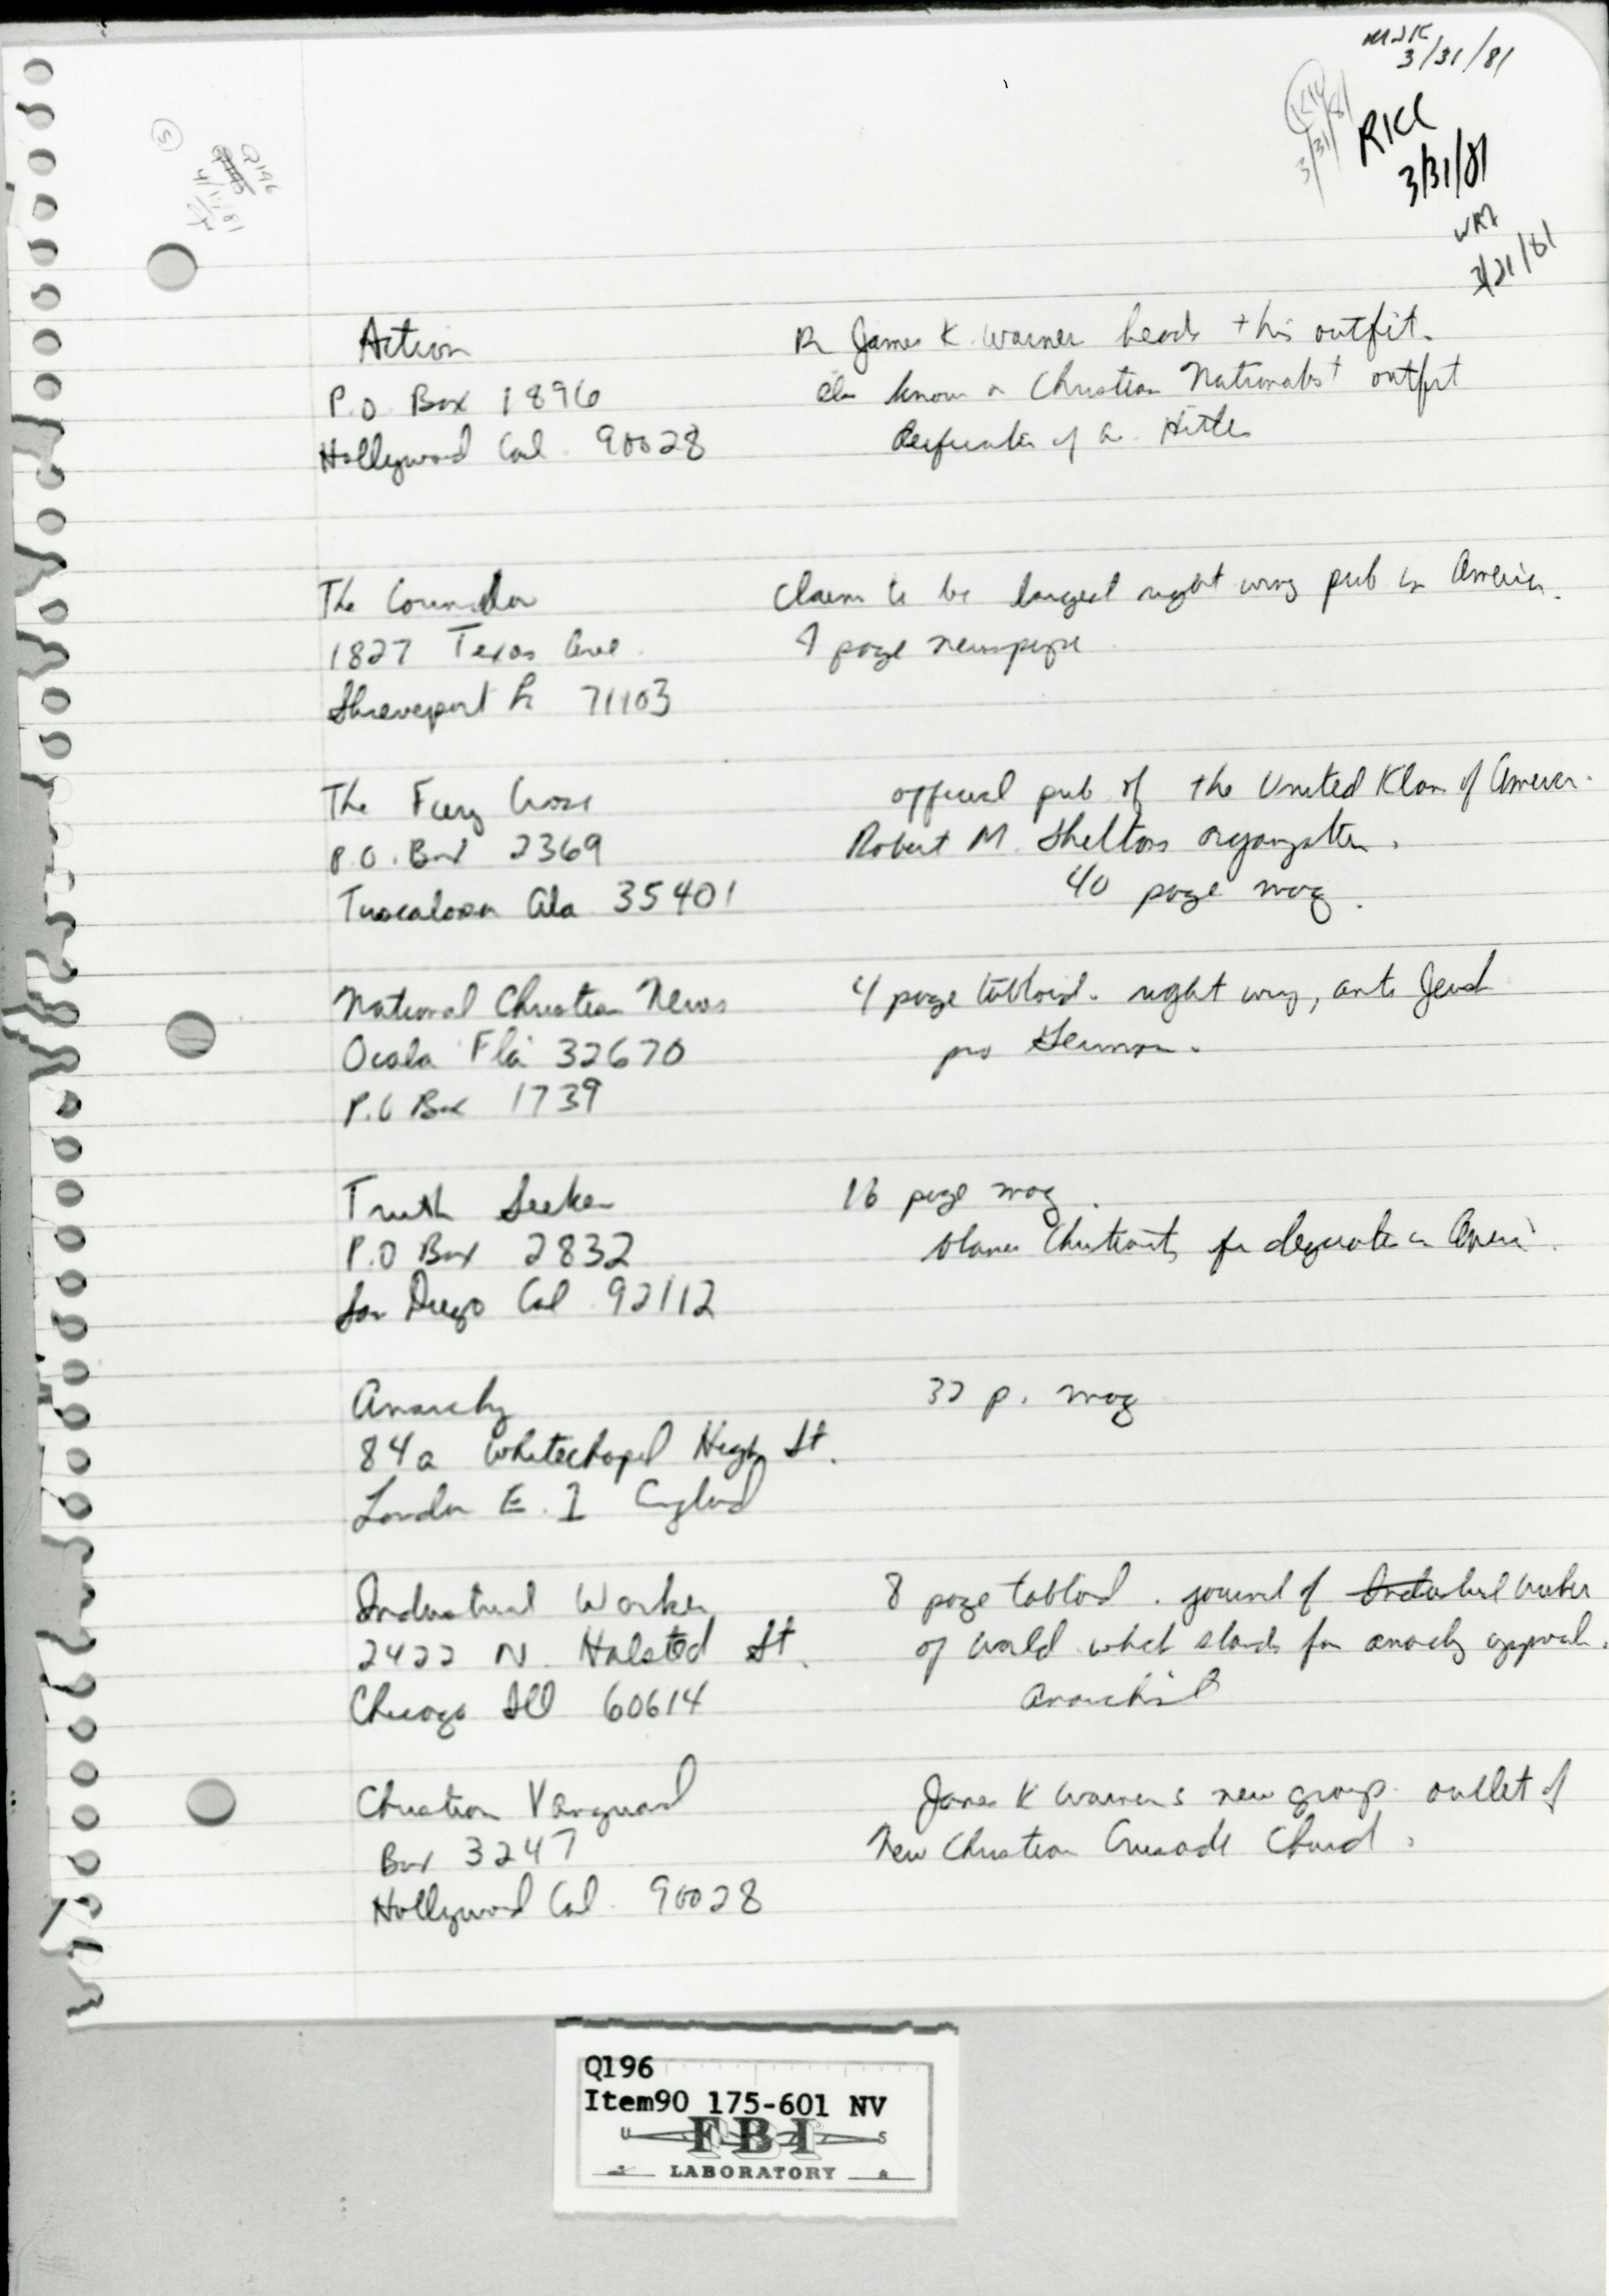 MJK
3/31/81
3/31/81
RKC
3/31/81
Q196
4/1/81
Action
P.O. Box 1896
Hollywood Cal. 90028
James K. Warner heads this outfit.
also known as Christian Nationalist outfit
of A. Hitler
The Councilor
1827 Texas Ave.
Shreveport La 71103
Claims to be largest right wing pub in America.
page newspaper
The Fiery Cross
P.O. Box 2369
Tuscaloosa Ala 35401
official pub of the United Klans of America.
Robert M. Sheltons organization.
40 page mag.
National Christian News
Ocala Fla 32670
P.O Box 1739
4 page tabloid. right wing, anti Jewish
pro German.
Truth Seeker
P.O Box 2832
San Diego Cal 92112
16 page mag.
blames Christianity for in America.
Anarchy
84a Whitechapel High St.
London E. 1 England
32 p. mag
Industrial Worker
2422 N. Halsted St.
Chicago Ill 60614
8 page tabloid. journal of Industrial Worker
of World which stands for anarchy approach.
Anarchist
Christian Vanguard
Box 3247
Hollywood Cal. 90028
James K Warners new group. outlet of
New Christian Crusade Church.
Q196
Item90 175-601 NV
U S
FBI
LABORATORY